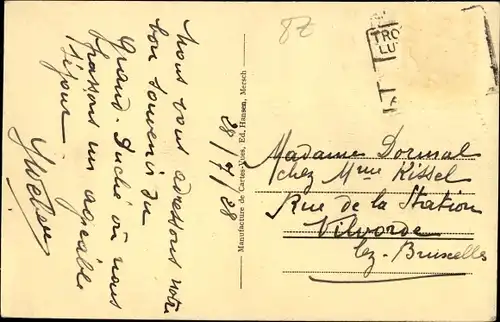 Nous vous adressons notre
bon souvenir du
Grand-Duché où nous
passons un agréable
séjour
28/7/28
Manufacture de Cartes-Vues, Ed. Hansen, Mersch
TRO
LU
87
Madame Dormal
chez Mme Kissel
Rue de la Station
Vilvorde
lez-Bruxelles